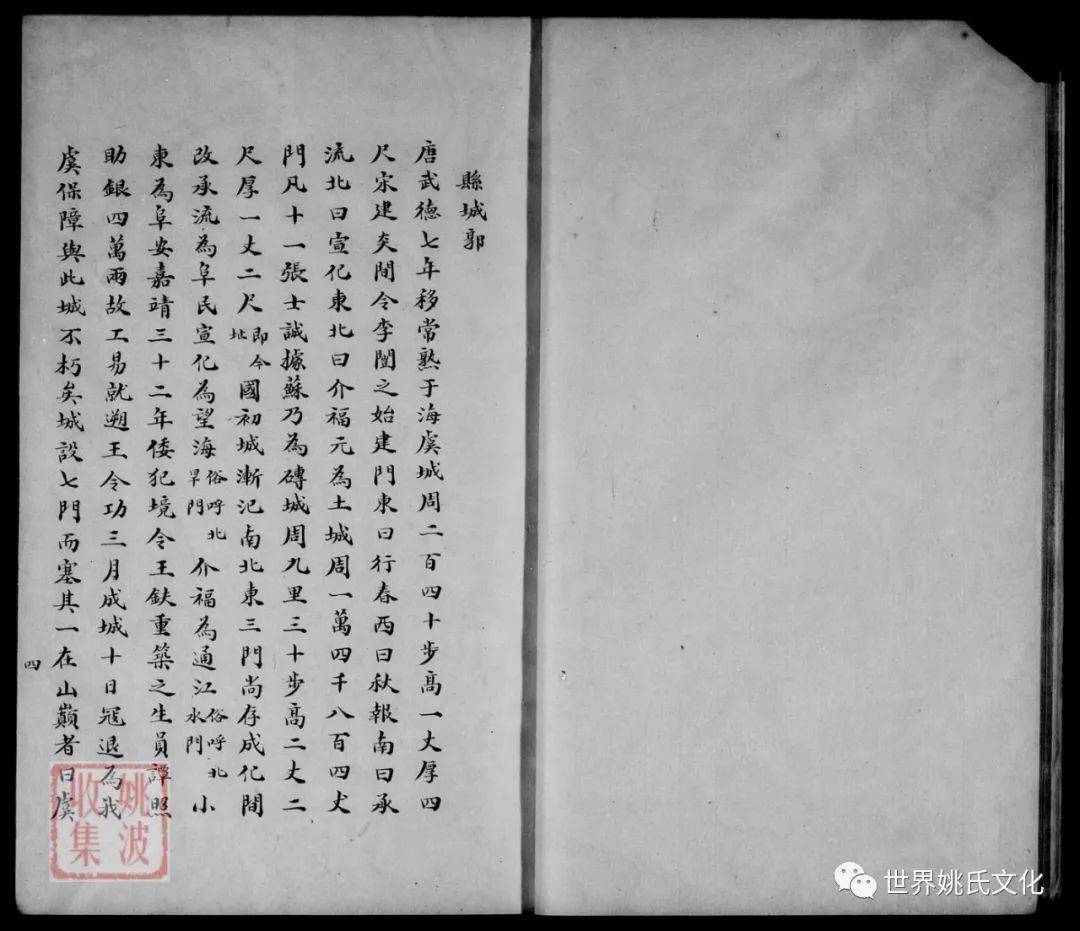 縣城郭
唐武德七年移常熟于海虞城周二百四十步高一丈厚四
尺宋建炎間令李闓之始建門東曰行春西曰秋報南曰承
流北曰宣化東北曰介福元為土城周一萬四千八百四丈
門凡十一張士誠據蘇乃為磚城周九里三十步高二丈二
尺厚一丈二尺即今址國初城漸圮南北東三門尚存成化間
改承流為阜民宣化為望海俗呼北旱門介福為通江俗呼北水門小
東為阜安嘉靖三十二年倭犯境令王鈇重築之生員譚照
助銀四萬兩故工易就遡王令功三月成城十日冦退為我
虞保障與此城不朽矣城設七門而塞其一在山巔者曰虞
四
姚波
收集
世界姚氏文化